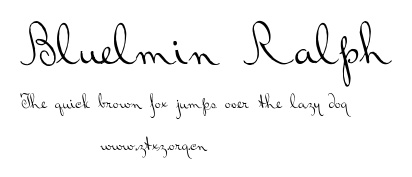 Bluelmin Ralph
The quick brown fox jumps over the lazy dog
www.ztxzorgen